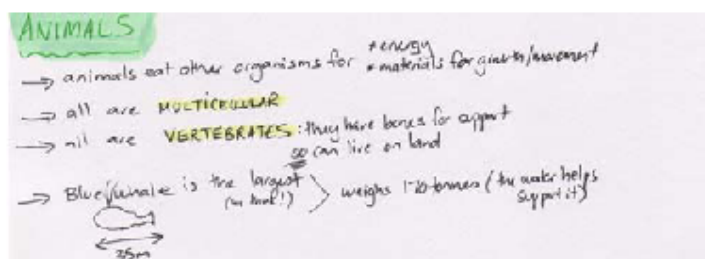 ANIMALS
→ animals eat other organisms for * energy
* materials for growth/movement
→ all are MULTICELLULAR
→ all are VERTEBRATES: they have bones for support
so can live on land
→ Blue whale is the largest
weighs tonnes (the water helps
support it)